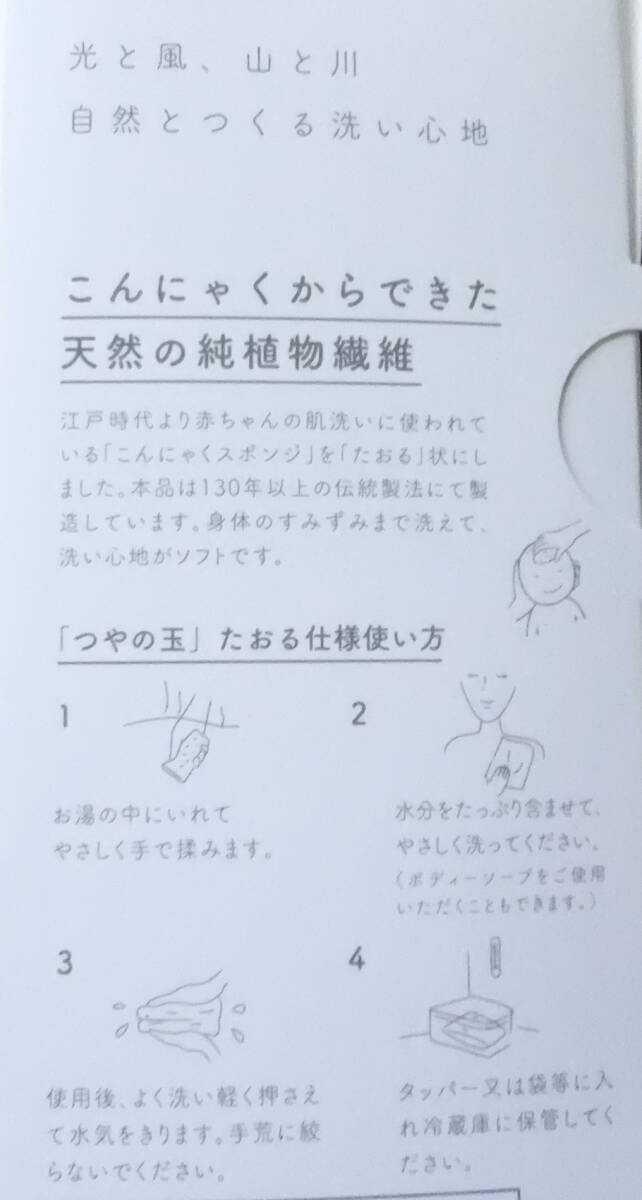 光と風、山と川
自然とつくる洗い心地
こんにゃくからできた
天然の純植物繊維
江戸時代より赤ちゃんの肌洗いに使われて
いる「こんにゃくスポンジ」を「たおる」状にし
ました。本品は130年以上の伝統製法にて製
造しています。身体のすみずみまで洗えて、
洗い心地がソフトです。
「つやの玉」たおる仕様使い方
1
お湯の中にいれて
やさしく手で揉みます。
2
水分をたっぷり含ませて、
やさしく洗ってください。
(ボディーソープをご使用
いただくこともできます。)
3
使用後、よく洗い軽く押さえ
て水気をきります。手荒に絞
らないでください。
4
タッパー又は袋等に入
れ冷蔵庫に保管してく
ださい。